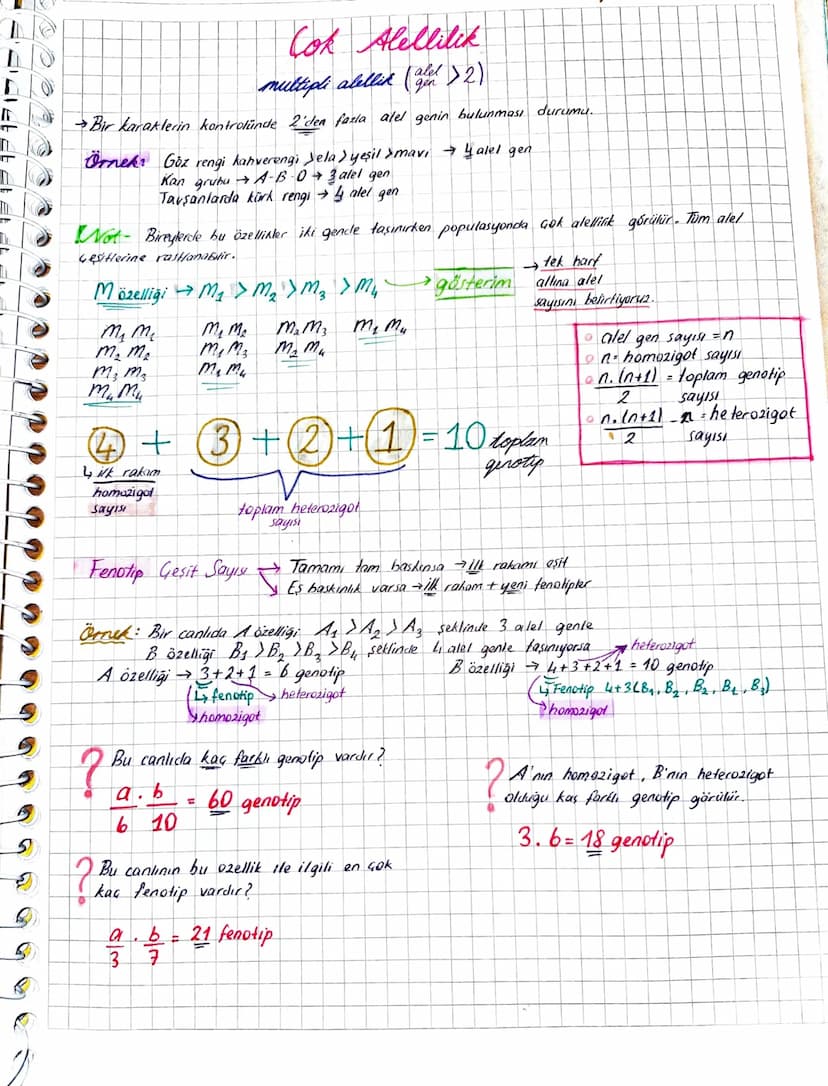 Çok Alellilik
multipli alellik (alel gen > 2)
→ Bir karakterin kontrolünde 2'den fazla alel genin bulunması durumu.
Örnek: Göz rengi kahverengi > ela > yeşil > mavi → 4 alel gen
Kan grubu → A-B-O → 3 alel gen
Tavşanlarda kürk rengi → 4 alel gen
!Not- Bireylerde bu özellikler iki genle taşınırken populasyonda çok alellilik görülür. Tüm alel
çeşitlerine rastlanabilir.
M özelliği → M₁ > M₂ > M₃ > M₄ → gösterim → tek harf
altına alel
sayısını belirtiyoruz.
M₁ M₁ M₁ M₂ M₂ M₃ M₃ M₄
M₂ M₂ M₁ M₃ M₂ M₄
M₃ M₃ M₁ M₄
M₄ M₄
alel gen sayısı = n
n = homozigot sayısı
n.(n+1)/2 = toplam genotip
sayısı
n.(n+1)/2 - n = heterozigot
sayısı
4 + 3 + 2 + 1 = 10 toplam
genotip
↳ ilk rakam
homozigot
sayısı
toplam heterozigot
sayısı
Fenotip Çeşit Sayısı → Tamamı tam baskınsa → ilk rakama eşit
↘ Eş baskınlık varsa → ilk rakam + yeni fenotipler
Örnek: Bir canlıda A özelliği A₁ > A₂ > A₃ şeklinde 3 alel genle
B özelliği B₁ > B₂ > B₃ > B₄ şeklinde 4 alel genle taşınıyorsa
heterozigot
A özelliği → 3+2+1 = 6 genotip
B özelliği → 4+3+2+1 = 10 genotip
↳ fenotip → heterozigot
↳ Fenotip 4+3 (B₁, B₂, B₂, B₁, B₃)
homozigot
homozigot
? Bu canlıda kaç farklı genotip vardır?
a/6 . b/10 = 60 genotip
? A'nın homozigot, B'nin heterozigot
olduğu kaç farklı genotip görülür.
3.6 = 18 genotip
? Bu canlının bu özellik ile ilgili en çok
kaç fenotip vardır?
a/3 . b/7 = 21 fenotip